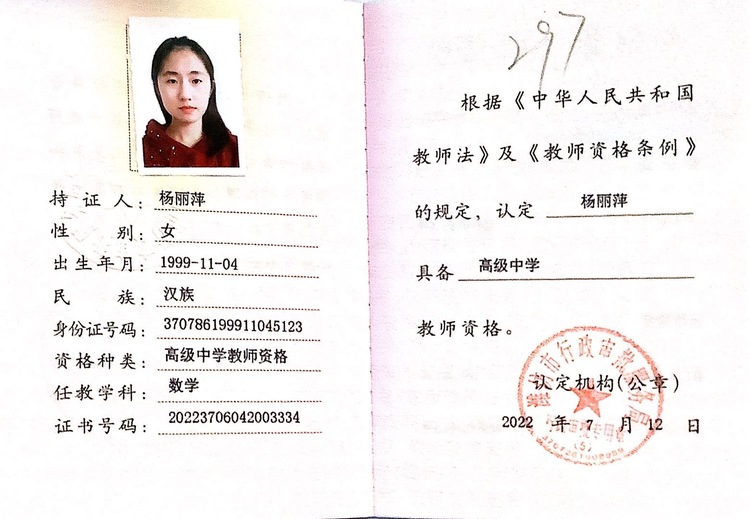 持证人：杨丽萍
性别：女
出生年月：1999-11-04
民族：汉族
身份证号码：370786199911045123
资格种类：高级中学教师资格
任教学科：数学
证书号码：20223706042003334
297
根据《中华人民共和国
教师法》及《教师资格条例》
的规定，认定 杨丽萍
具备 高级中学
教师资格。
市行政审批服务局
认定机构(公章)
2022 年 7 月 12 日
(5)